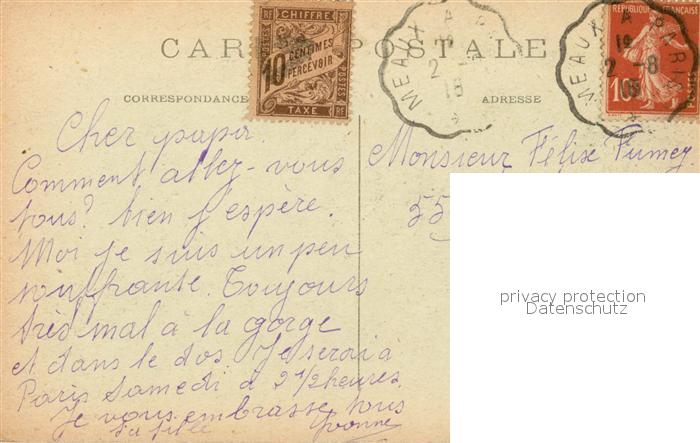 CARTE POSTALE
CHIFFRE
10 CENTIMES
À PERCEVOIR
TAXE
POSTES
RF
MEAUX A PARIS
2 -8
RÉPUBLIQUE FRANÇAISE
10c
POSTES
CORRESPONDANCE
ADRESSE
Cher papa.
Comment allez-vous
tous? bien j'espère.
Moi je suis un peu
souffrante. Toujours
très mal à la gorge
et dans le dos Je serai à
Paris Samedi à 2 1/2 heures.
Je vous embrasse tous
Ta fille Yvonne
Monsieur Félix Fumey
55
privacy protection
Datenschutz